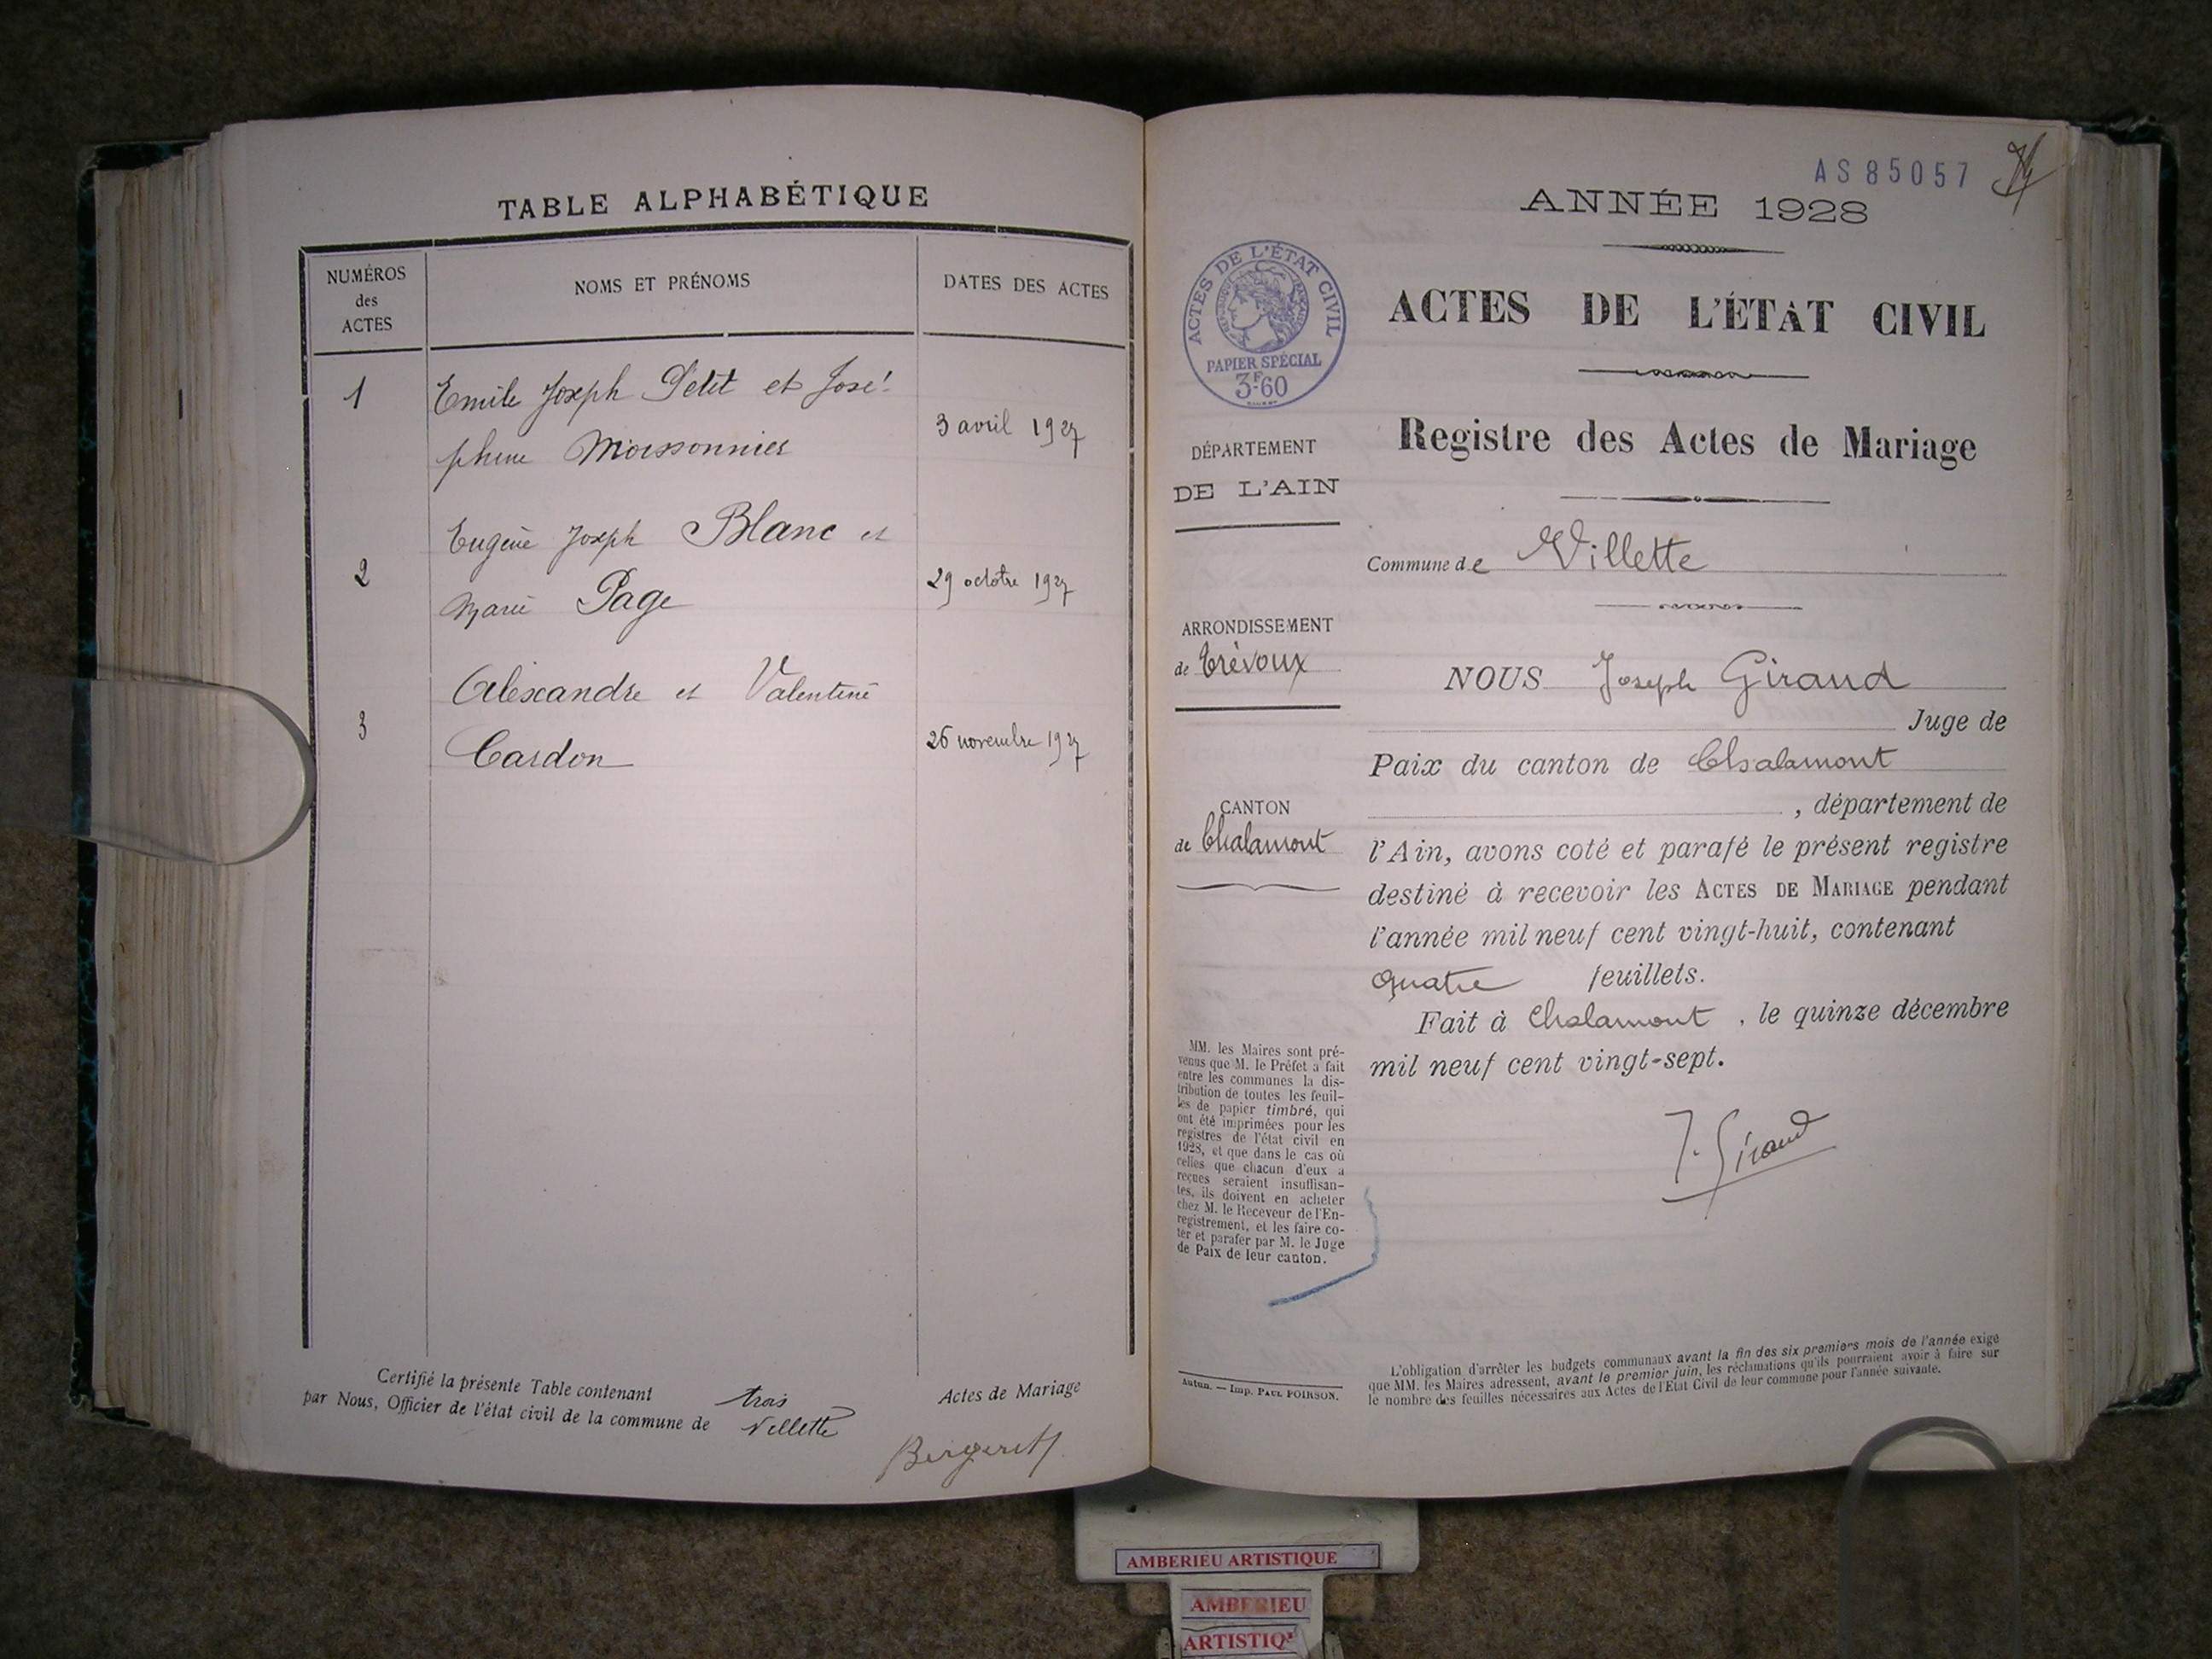 TABLE ALPHABÉTIQUE
NUMÉROS
des
ACTES
NOMS ET PRÉNOMS
DATES DES ACTES
1
Emile Joseph Petit et José-
phine Moissonnier
3 avril 1927
2
Eugène Joseph Blanc et
Marie Page
29 octobre 1927
3
Alexandre et Valentine
Cardon
26 novembre 1927
Certifié la présente Table contenant trois Actes de Mariage
par Nous, Officier de l'état civil de la commune de Villette
AS 85057
ANNÉE 1928
ACTES DE L'ÉTAT CIVIL
RÉPUBLIQUE FRANÇAISE
PAPIER SPÉCIAL
3F.60
DÉPARTEMENT
DE L'AIN
ARRONDISSEMENT
de Trévoux
CANTON
de Chalamont
MM. les Maires sont pré-
venus que M. le Préfet a fait
entre les communes la dis-
tribution de toutes les feuil-
les de papier timbré, qui
ont été imprimées pour les
registres de l'état civil en
1928, et que dans le cas où
celles que chacun d'eux a
reçues seraient insuffisan-
tes, ils doivent en acheter
chez M. le Receveur de l'En-
registrement, et les faire co-
ter et parafer par M. le Juge
de Paix de leur canton.
Autun. — Imp. PAUL POIRSON.
ACTES DE L'ÉTAT CIVIL
Registre des Actes de Mariage
Commune de Villette
NOUS Joseph Giraud
Juge de
Paix du canton de Chalamont
, département de
l'Ain, avons coté et parafé le présent registre
destiné à recevoir les ACTES DE MARIAGE pendant
l'année mil neuf cent vingt-huit, contenant
quatre feuillets.
Fait à Chalamont, le quinze décembre
mil neuf cent vingt-sept.
J. Giraud
L'obligation d'arrêter les budgets communaux avant la fin des six premiers mois de l'année exige
que MM. les Maires adressent, avant le premier juin, les réclamations qu'ils pourraient avoir à faire sur
le nombre des feuilles nécessaires aux Actes de l'État Civil de leur commune pour l'année suivante.
AMBERIEU ARTISTIQUE
AMBERIEU
ARTISTIQ